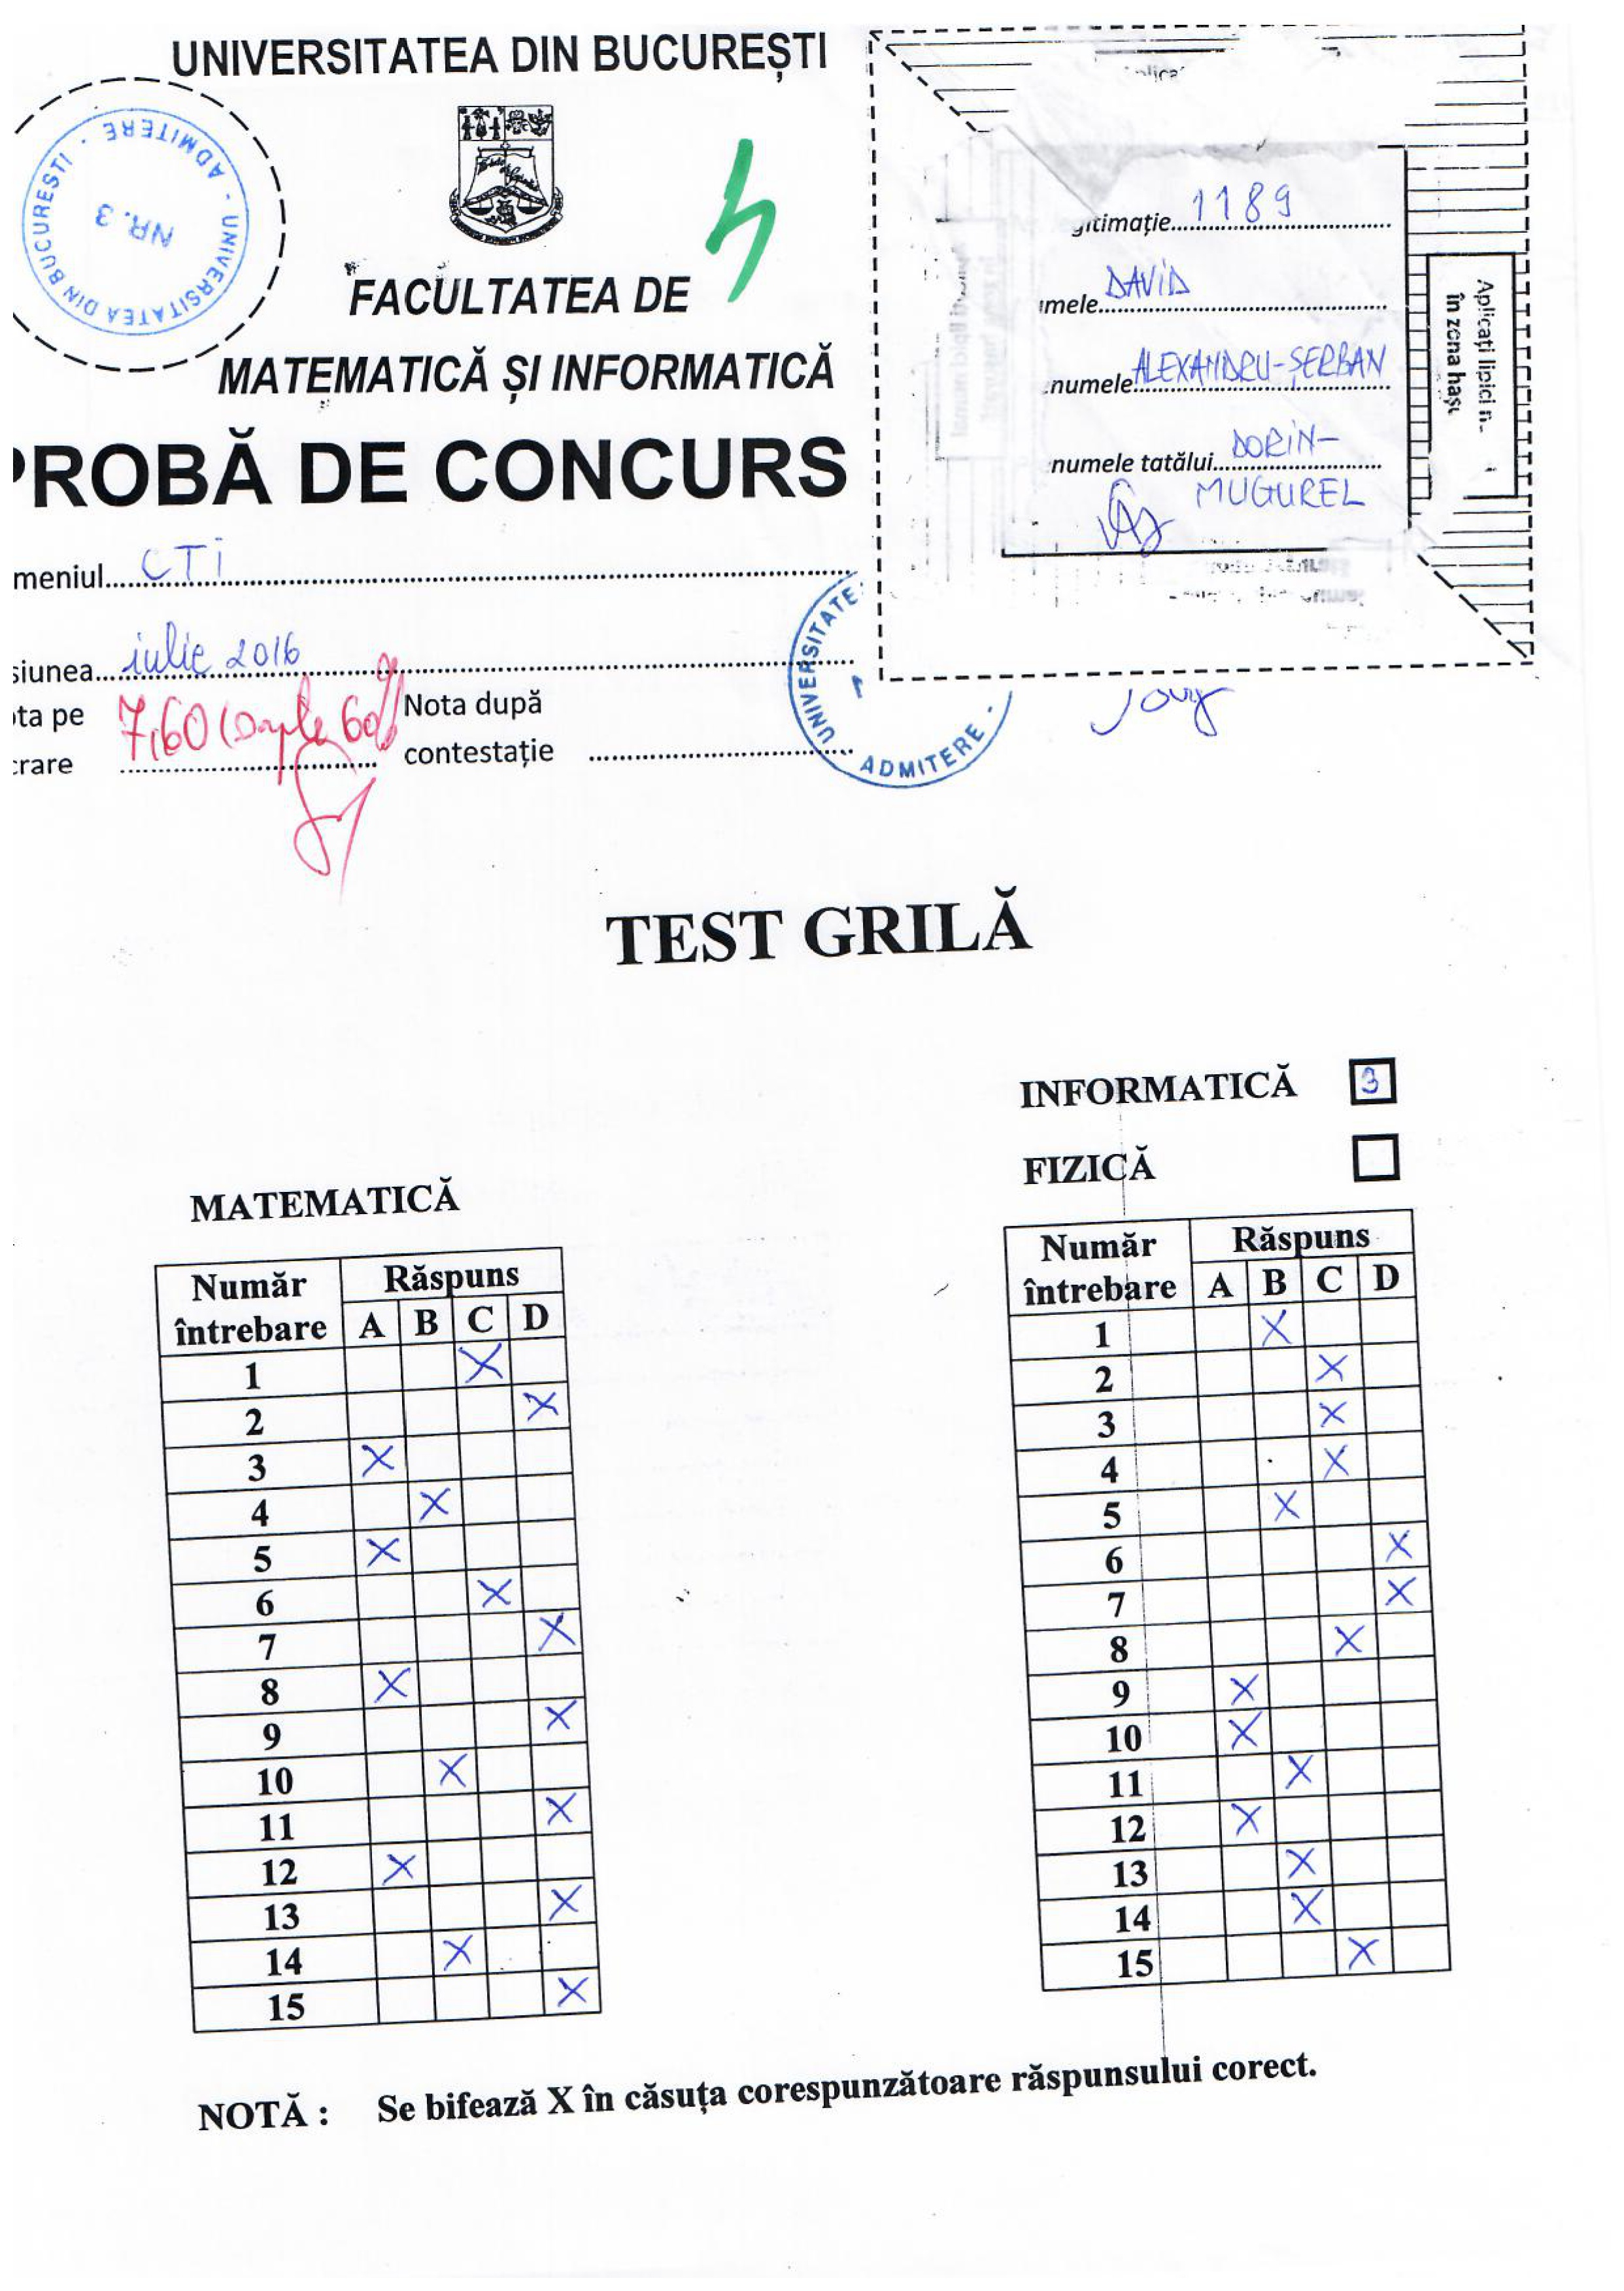 UNIVERSITATEA DIN BUCUREȘTI
UNIVERSITATEA DIN BUCURESTI · ADMITERE ·
NR. 3
FACULTATEA DE
MATEMATICĂ ȘI INFORMATICĂ
PROBĂ DE CONCURS
meniul CTi
siunea iulie 2016
ta pe 7,60 (
crare
Nota după
contestație
UNIVERSITATE
ADMITERE
gitimație 1189
mele DAViD
numele ALEXANDRU-ȘERBAN
numele tatălui DORiN-
MUGUREL
Aplicați lipici
în zona
TEST GRILĂ
INFORMATICĂ 3
FIZICĂ
MATEMATICĂ
Număr Răspuns
întrebare A B C D
1 X
2 X
3 X
4 X
5 X
6 X
7 X
8 X
9 X
10 X
11 X
12 X
13 X
14 X
15 X
Număr Răspuns
întrebare A B C D
1 X
2 X
3 X
4 X
5 X
6 X
7 X
8 X
9 X
10 X
11 X
12 X
13 X
14 X
15 X
NOTĂ : Se bifează X în căsuța corespunzătoare răspunsului corect.